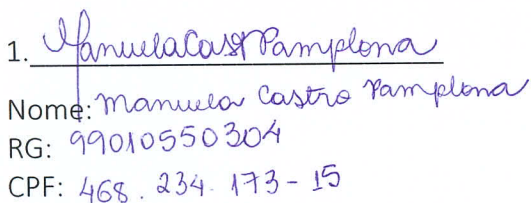 1. Manuela Cast Pamplona
Nome: Manuela Castro Pamplona
RG: 99010550304
CPF: 468.234.173-15